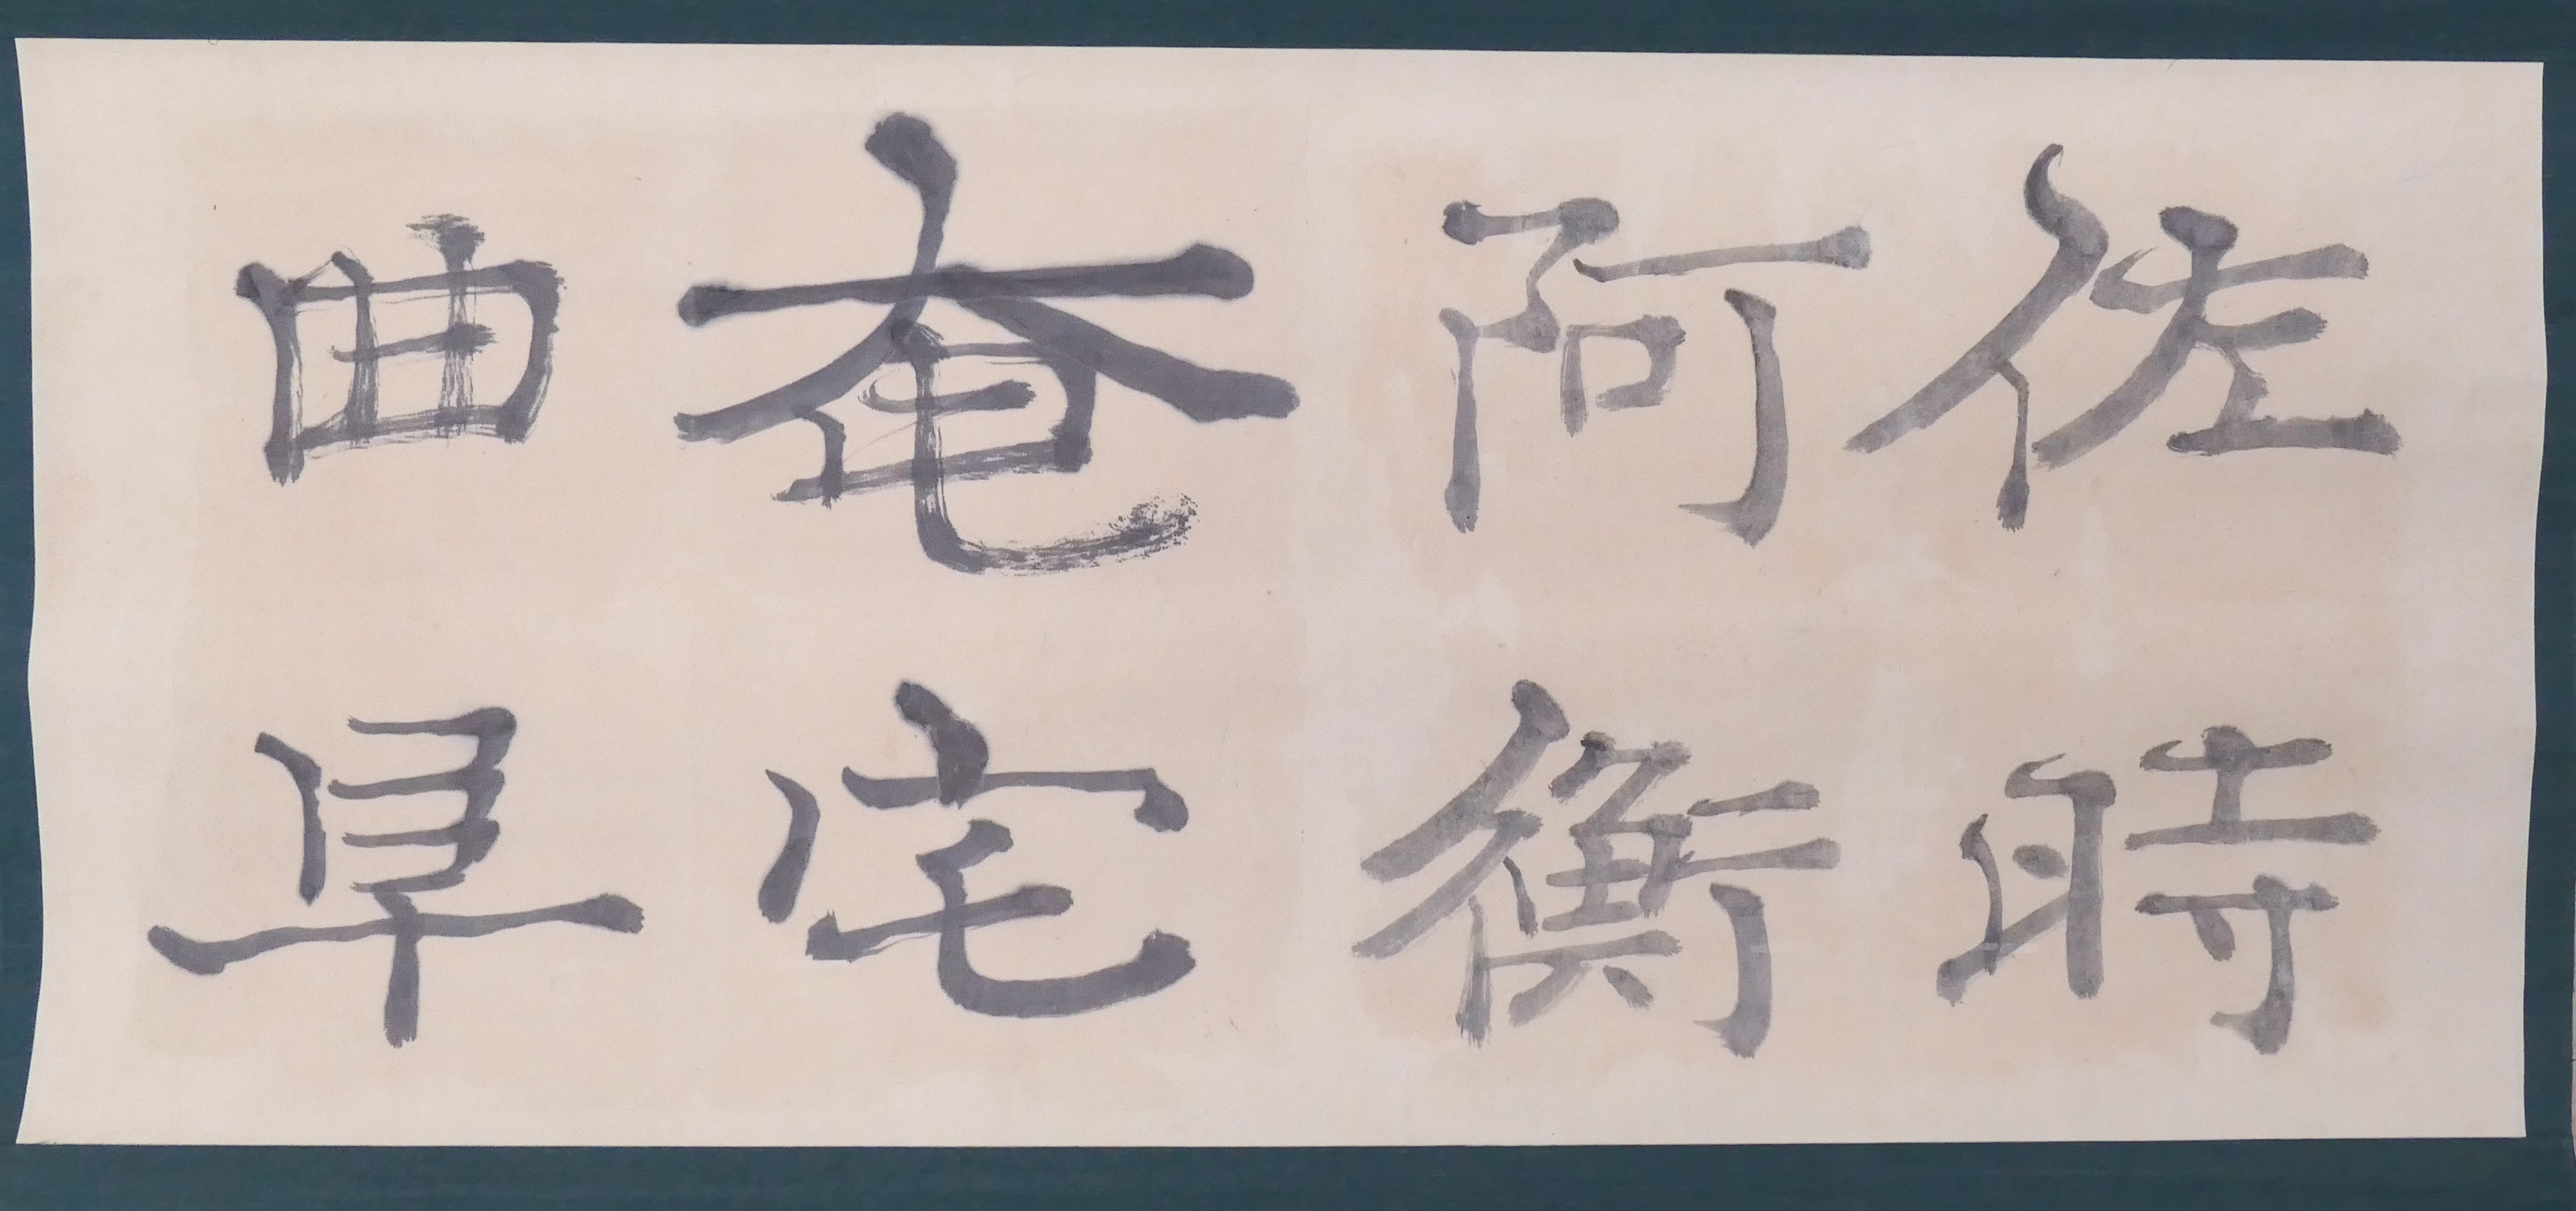 佐時
阿衡
奄宅
曲阜